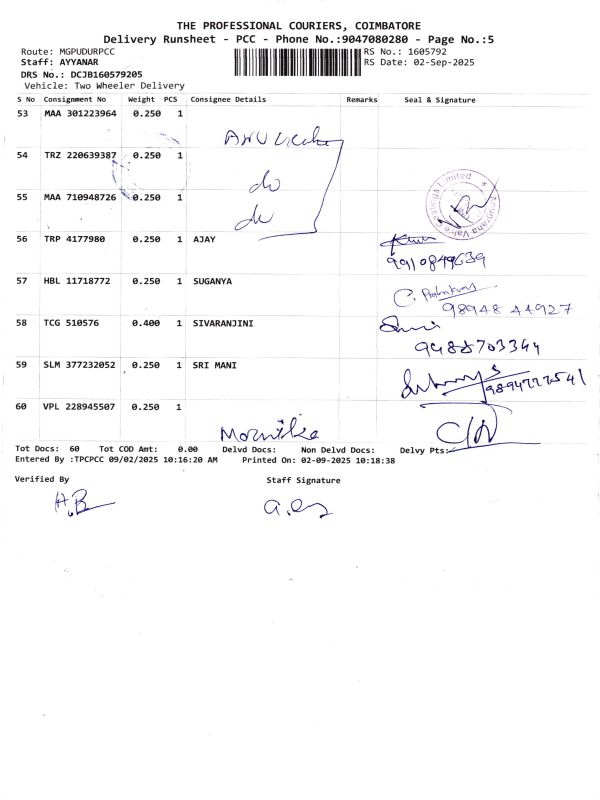 THE PROFESSIONAL COURIERS, COIMBATORE
Delivery Runsheet - PCC - Phone No.:9047080280 - Page No.:5
Route: MGPUDURPCC RS No.: 1605792
Staff: AYYANAR RS Date: 02-Sep-2025
DRS No.: DCJB160579205
Vehicle: Two Wheeler Delivery
S No Consignment No Weight PCS Consignee Details Remarks Seal & Signature
53 MAA 301223964 0.250 1
54 TRZ 220639387 0.250 1
do
55 MAA 710948726 0.250 1
do
56 TRP 4177980 0.250 1 AJAY
9910849639
57 HBL 11718772 0.250 1 SUGANYA
98948 44927
58 TCG 510576 0.400 1 SIVARANJINI
9488703344
59 SLM 377232052 0.250 1 SRI MANI
60 VPL 228945507 0.250 1
Tot Docs: 60 Tot COD Amt: 0.00 Delvd Docs: Non Delvd Docs: Delvy Pts:
Entered By :TPCPCC 09/02/2025 10:16:20 AM Printed On: 02-09-2025 10:18:38
Verified By Staff Signature